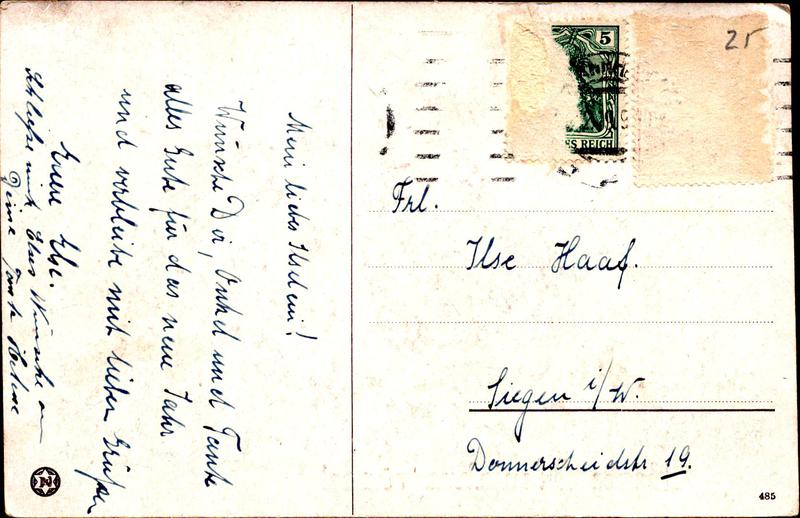 Mein liebes Ilselein!
Wünsche Dir, Onkel und Tante
alles Gute für das neue Jahr
und verbleibe mit lieben Grüßen
Eure Else.
Schließe mich Elses Wünsche an
Deine Tante
25
5
ES REICH
Frl.
Ilse Haaf.
Siegen i/W.
Donnerscheidstr 19.
485